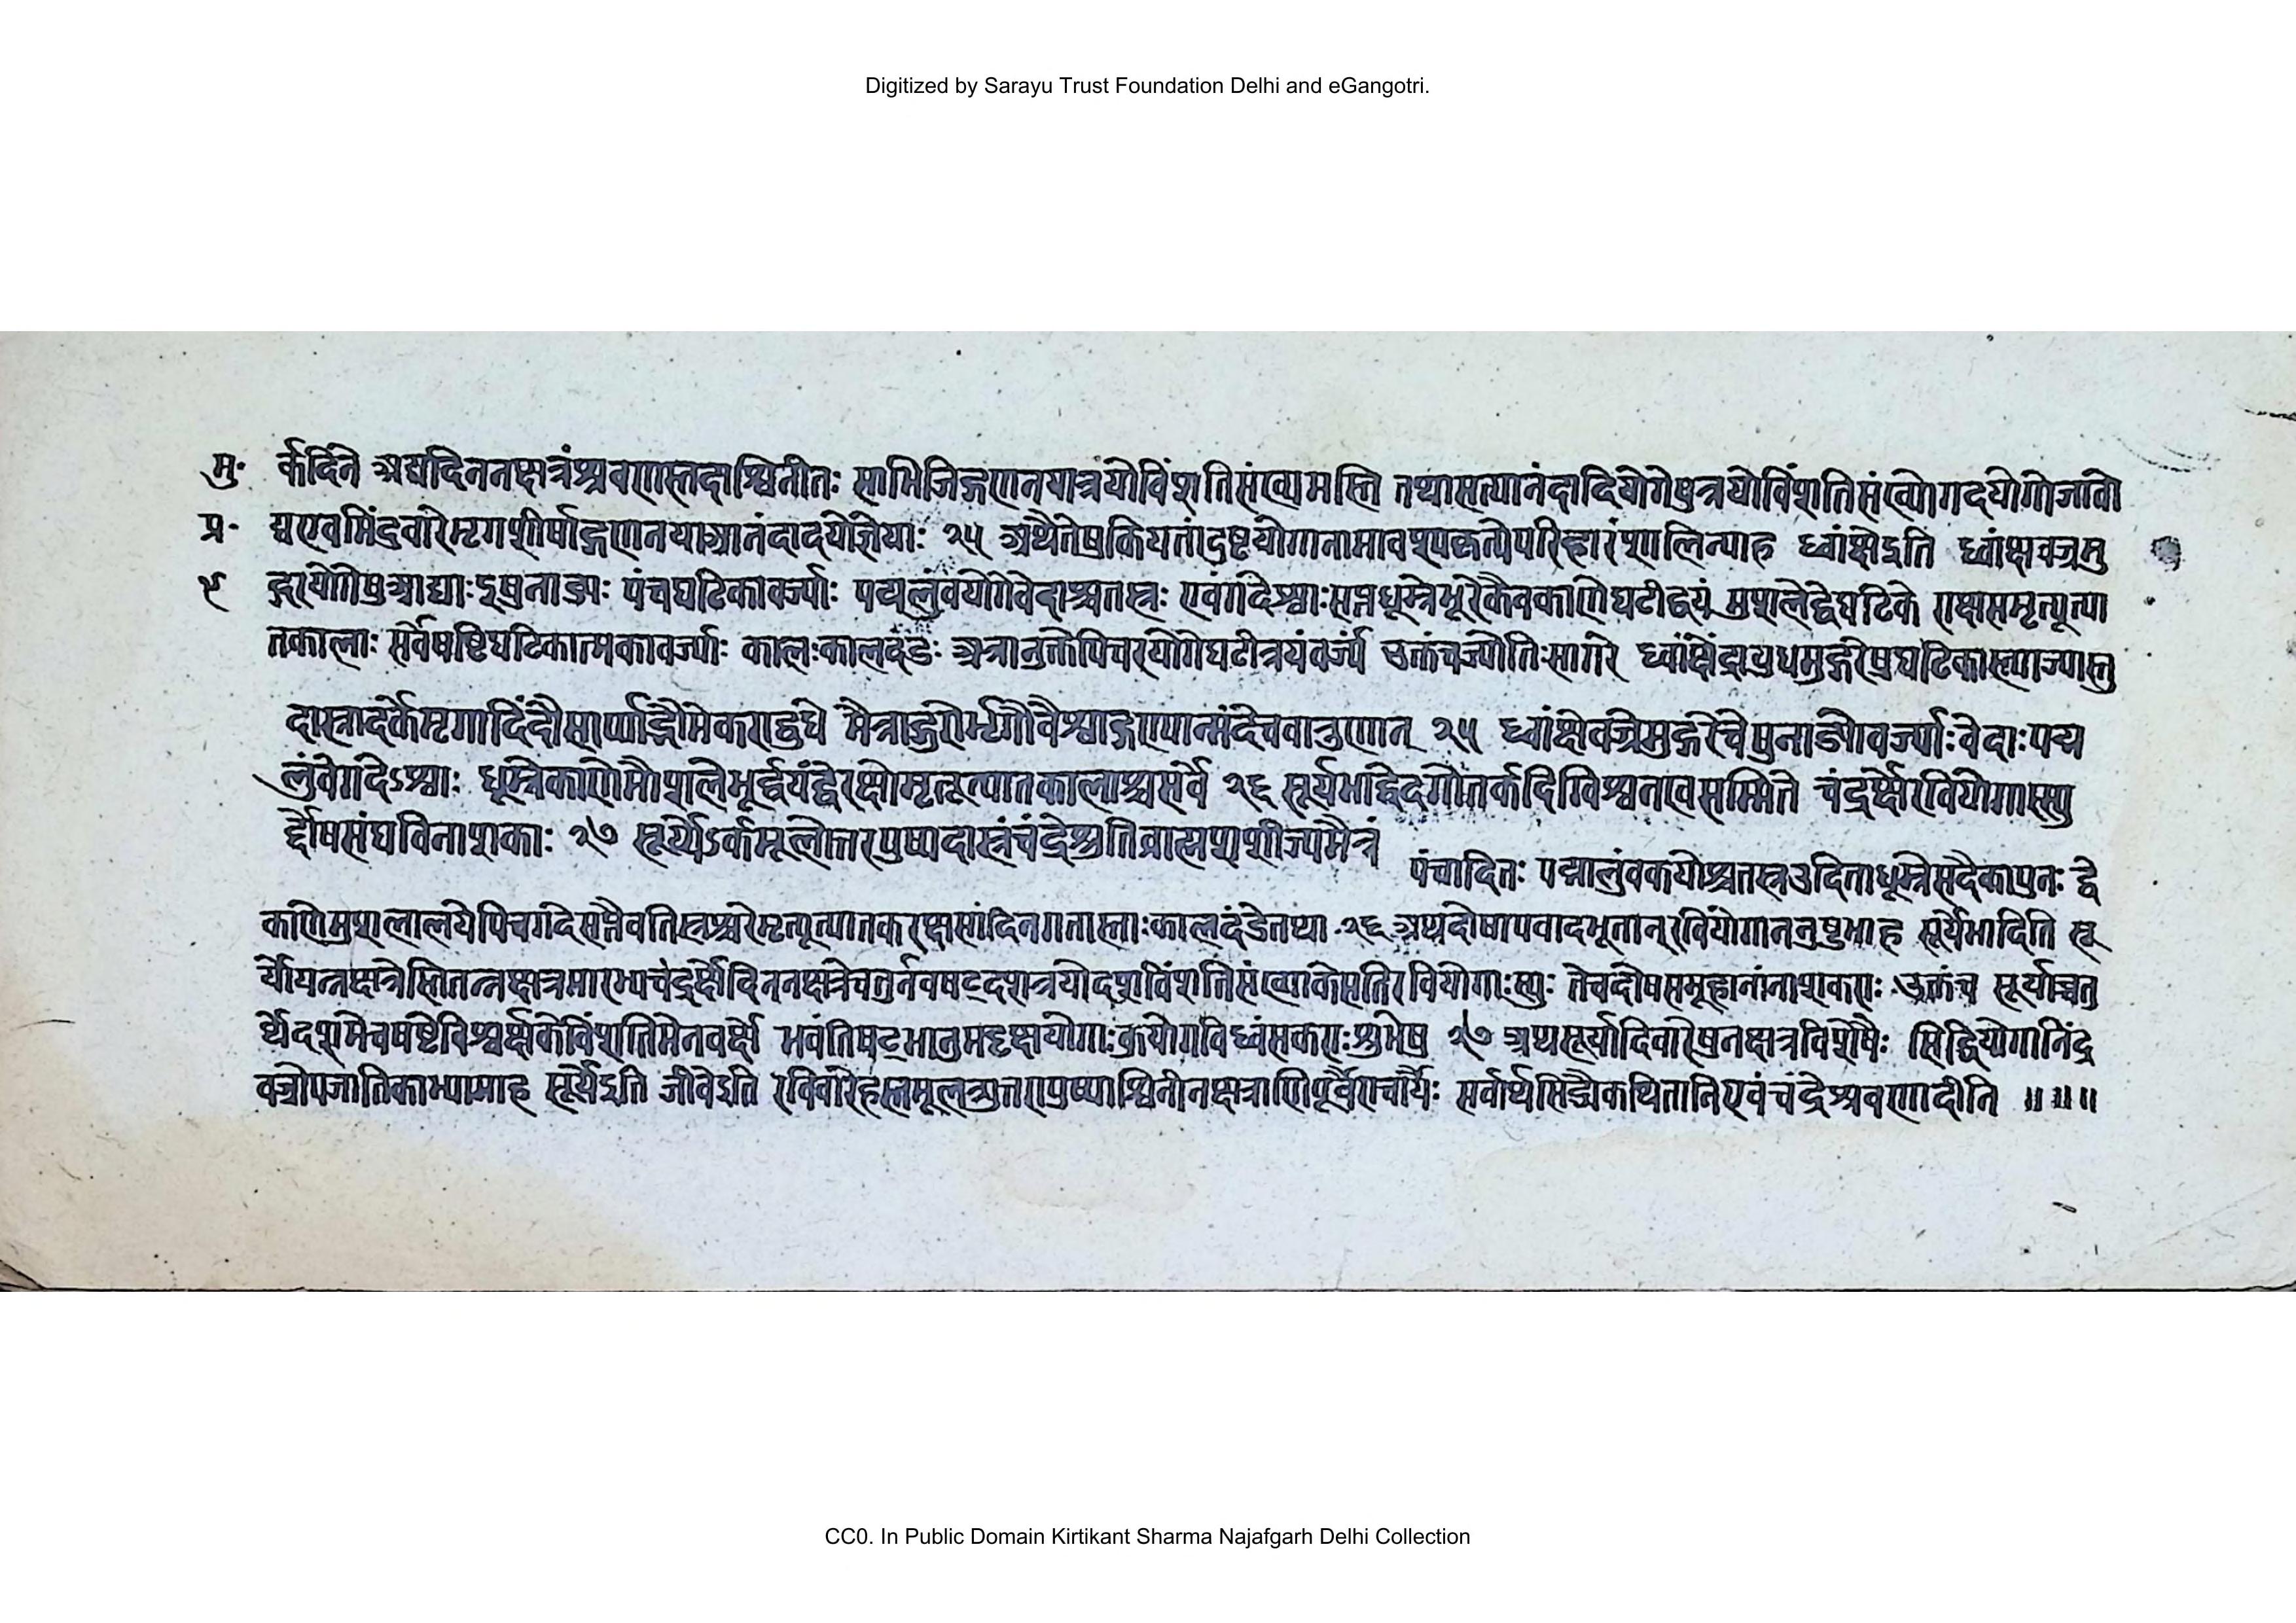 Digitized by Sarayu Trust Foundation Delhi and eGangotri.
मु॰ र्कदिने अद्यदिननक्षत्रंश्रवणस्तदाश्विनीतः साभिजिद्गणनयात्रयोविंशतिसंख्यमस्ति तथासत्यानंदादियोगेषुत्रयोविंशतिसंख्योगदयोगोजातो
प्र॰ ष्वएवमिंदुवारेमृगशीर्षाद्गणनयाआनंदादयोज्ञेयाः २५ अथैतेषुकियतांदुष्टयोगानामावश्यककृत्येपरिहारंशालिन्याह ध्वांक्षेइति ध्वांक्षवज्रमु
९ द्गरयोगेषुआद्याःइषुनाड्यः पंचघटिकावर्ज्याः पद्मलुंबयोगेवेदाश्चतस्रः एवंगदेश्वाःसप्तधूम्रेभूरेकैवकाणेघटीद्वयं मुशलेद्वेघटिके राक्षसमृत्यूत्पा
तकालाः सर्वेषष्टिघटिकात्मकावर्ज्याः कालःकालदंडः अत्रानुक्तेपिचरयोगेघटीत्रयंवर्ज्यं उक्तंचज्योतिःसागरे ध्वांक्षेंद्रायुधमुद्गरेषुघटिकास्त्याज्यास्तु
दास्रादर्केमृगादिंदौसार्पाद्भौमेकराद्बुधे मैत्राद्गुरोर्भृगौवैश्वाद्गण्यान्मंदेचवारुणात् २५ ध्वांक्षेवज्रेमुद्गरेचेषुनाड्योवर्ज्याःवेदाःपद्म
लुंबेगदेऽश्वाः धूम्रेकाणेमौशलेभूर्द्वयंद्वेरक्षोमृत्यूत्पातकालाश्चसर्वे २६ सूर्यभाद्वेदगोतर्कदिग्विश्वनखसम्मिते चंद्रर्क्षेरवियोगास्स्यु
र्दोषसंघविनाशकाः २७ सूर्य्येऽर्कमूलोत्तरपुष्यदास्रंचंद्रेश्रुतिब्राह्मशशीज्यमैत्रं
पंचादितः पद्मालुंबकयोश्चतस्रउदिताधूम्रेसदैकापुनः द्वे
काणेमुशलालयेपिचगदेसप्तैवतिस्रश्चरेमृत्यूत्पातकरक्षसांदिनगतास्ताःकालदंडेतथा २६ अथदोषापवादभूतान्रवियोगाननुष्टुभाह सूर्येभादिति सू
र्योयन्नक्षत्रेस्तितन्नक्षत्रमारभ्यचंद्रर्क्षेदिननक्षत्रेचतुर्नवषट्दशत्रयोदशविंशतिसंख्याकेसतिरवियोगाःस्युः तेचदोषसमूहानांनाशकराः उक्तंच सूर्याच्चतु
र्थेदशमेचषष्टेविश्वर्क्षकेविंशतिमेनवर्क्षे भवंतिषट्भानुमदृक्षयोगाःकुयोगविध्वंसकराःशुभेषु २७ अथसूर्यादिवारेषुनक्षत्रविशेषैः सिद्धियोगानिंद्र
वज्रोपजातिकाभ्यामाह सूर्येइति जीवेइति रविवारेहस्तमूलत्र्युत्तरापुष्याश्विनीनक्षत्राणिपूर्वैराचार्यैः सर्वार्थसिद्ध्यैकथितानिएवंचंद्रेश्रवणादीति ॥ ॥ ॥
CC0. In Public Domain Kirtikant Sharma Najafgarh Delhi Collection